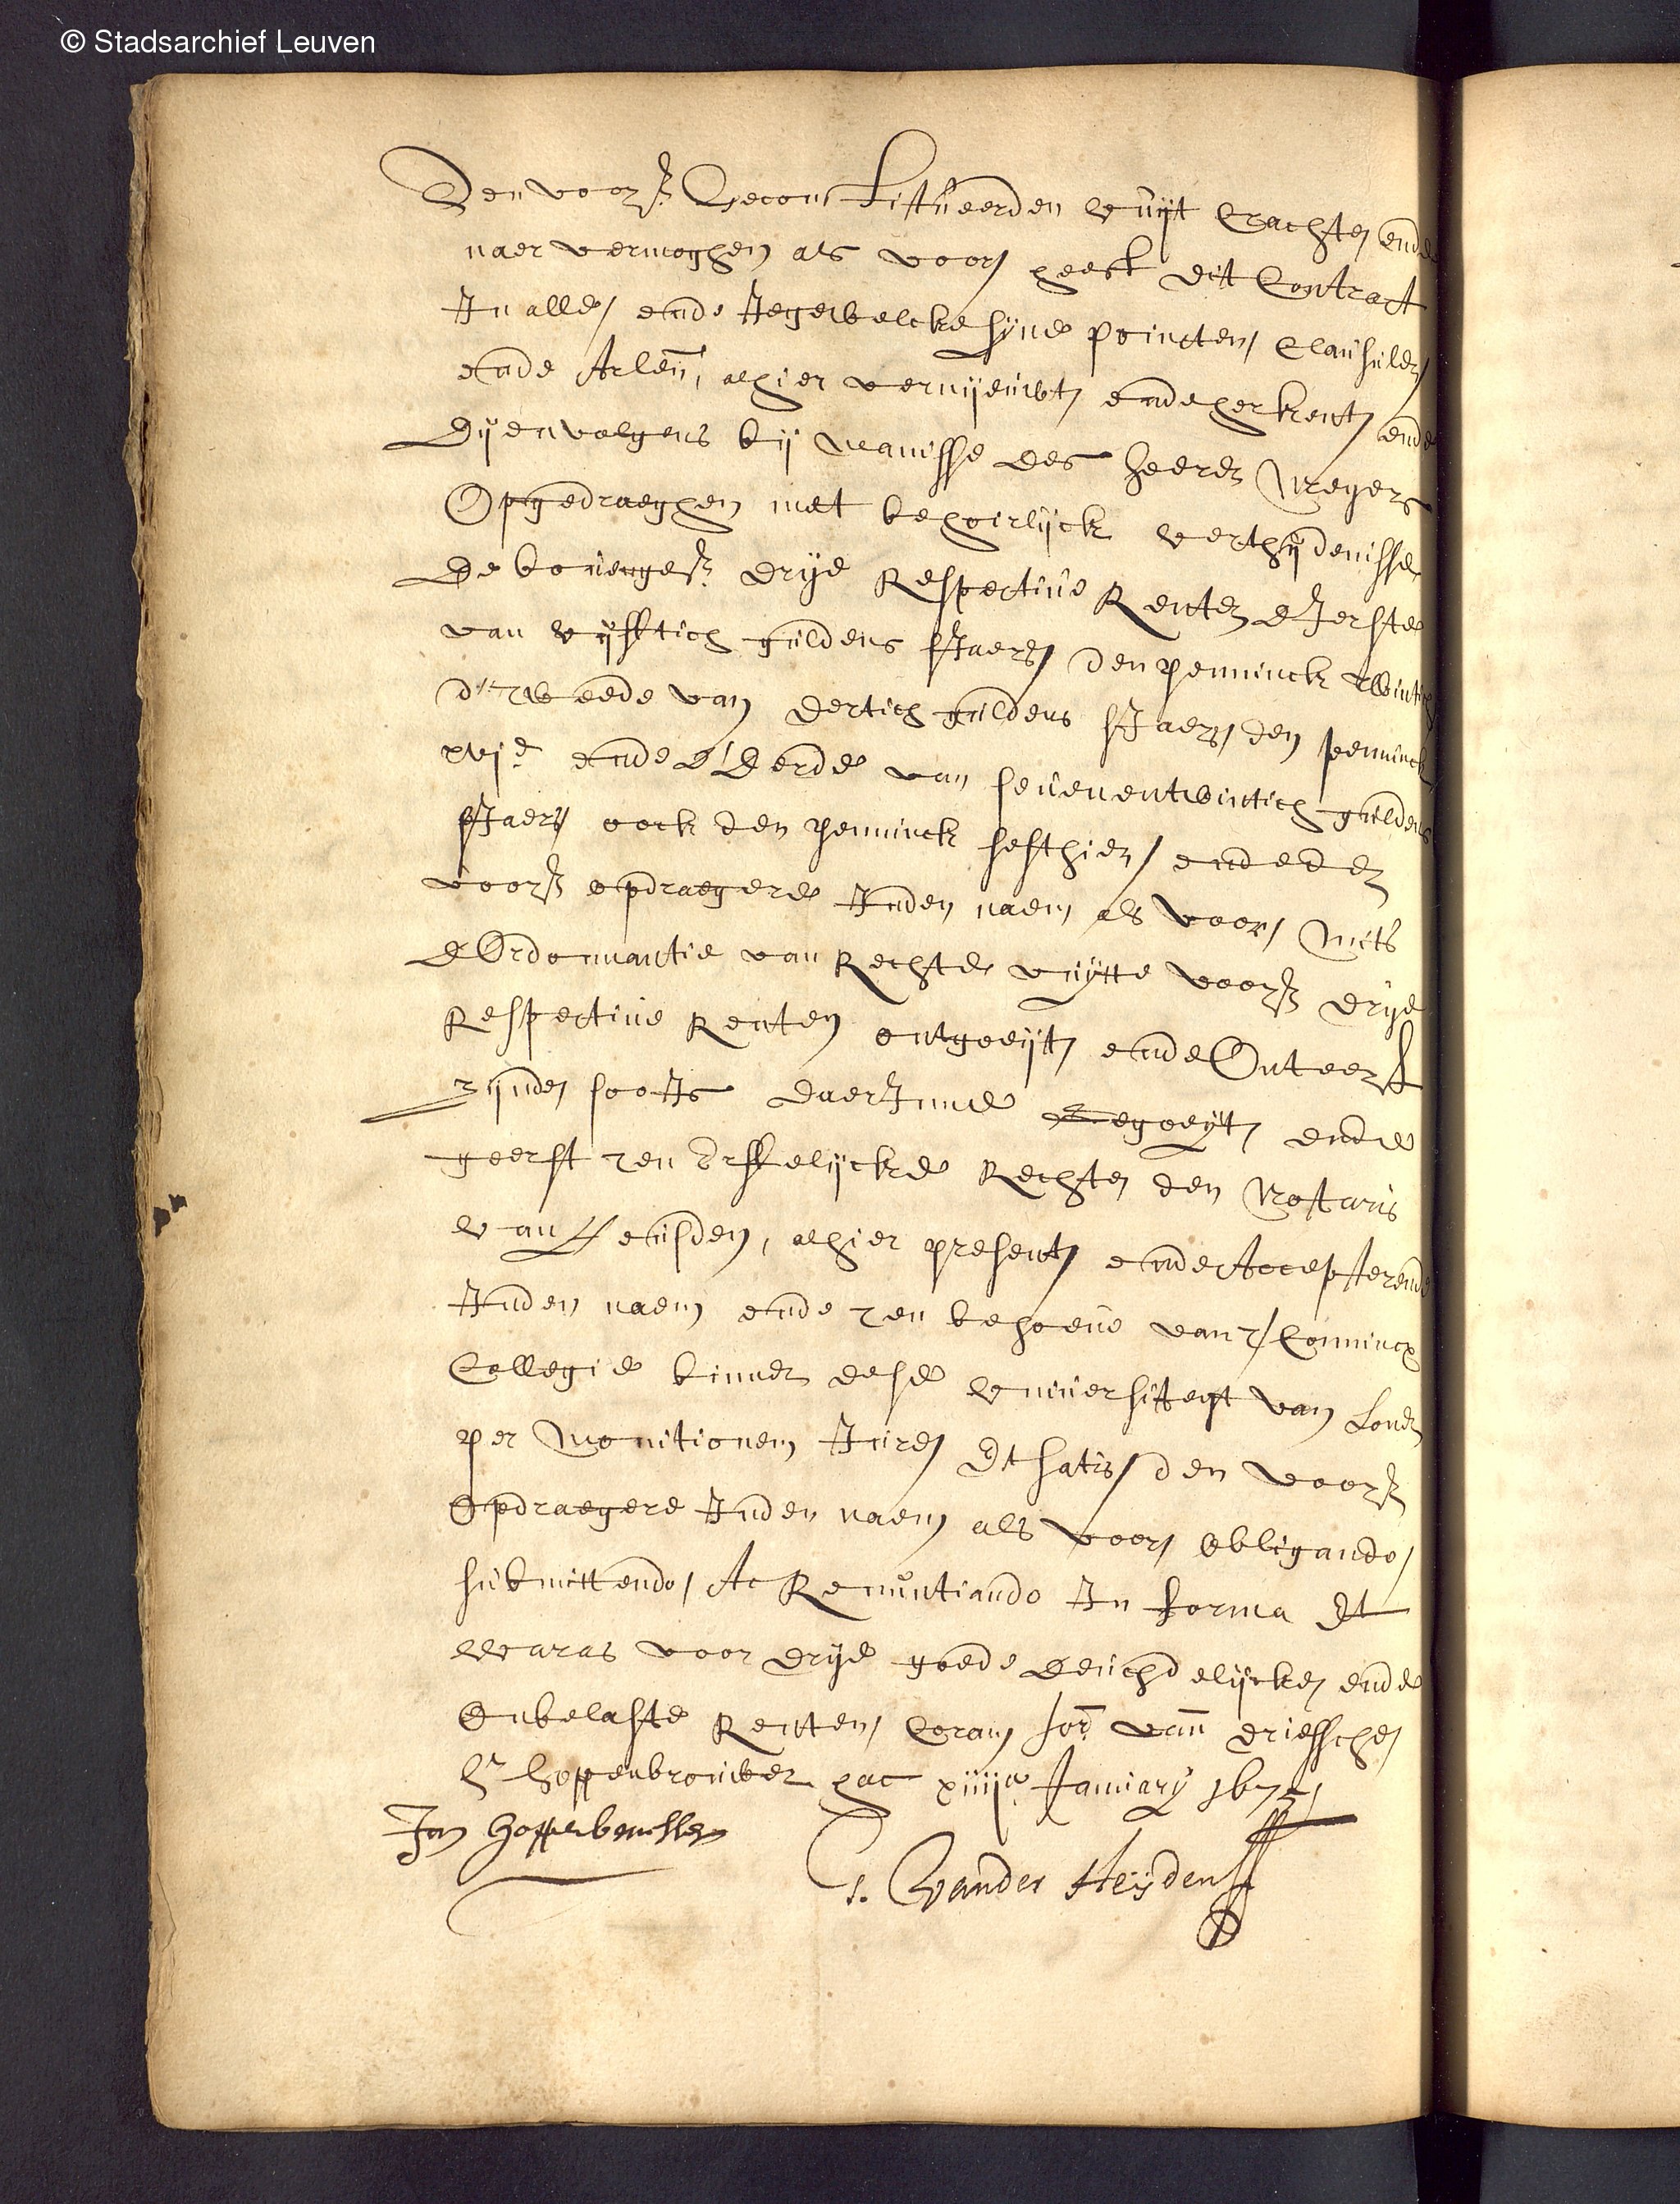 © Stadsarchief Leuven
Den voors. Geconstitueerden vuyt crachte ende
naer vermoghen als voor, heeft dit Contract
In alle, ende Iegewelcke syne poincten, clausulen
ende Arlen, alhier vernyeuwt, ende herkent, ende
Dyenvolgens by manisse des heeren Meyers
Opgedraeghen met behoirlyck verthydenisse
De bovenges. drye Respective Renten d'Ierste
van vyfftich guldens sIaers, den penninck twintich
d'tweede van dertich guldens sIaers, den penninck
xvje ende d'derde van sevenentwintich guldens
sIaers, oock den penninck sesthien, ende den
voors. opdraegere Inden naem als voor, mits
d'Ordonnantie van Rechte vuytte voors. drye
Respective Renten ontgoeyt, ende Onteerft
zynde, soo Is daerInne gegoeyt, ende
geerft ten Erffelycke Rechte, den Notaris
van Leusden, alhier present, ende Accepterende
Inden naem ende ten behoeve van t'Connincx
Collegie binnen dese Universiteyt van Loven
per monitionem Iure, Et satis, den voors.
Opdraegere Inden naem als voor, obligando,
submittendo, Ac Renuntiando In forma Et
waras voor drye goede deuchdelycke, ende
Onbelaste Renten, Coram Jor. van driessche,
hr. hoppenbrouwer hac xiiija. January 1675,
Jan Hoppenbrouwer
J. Vander Heyden